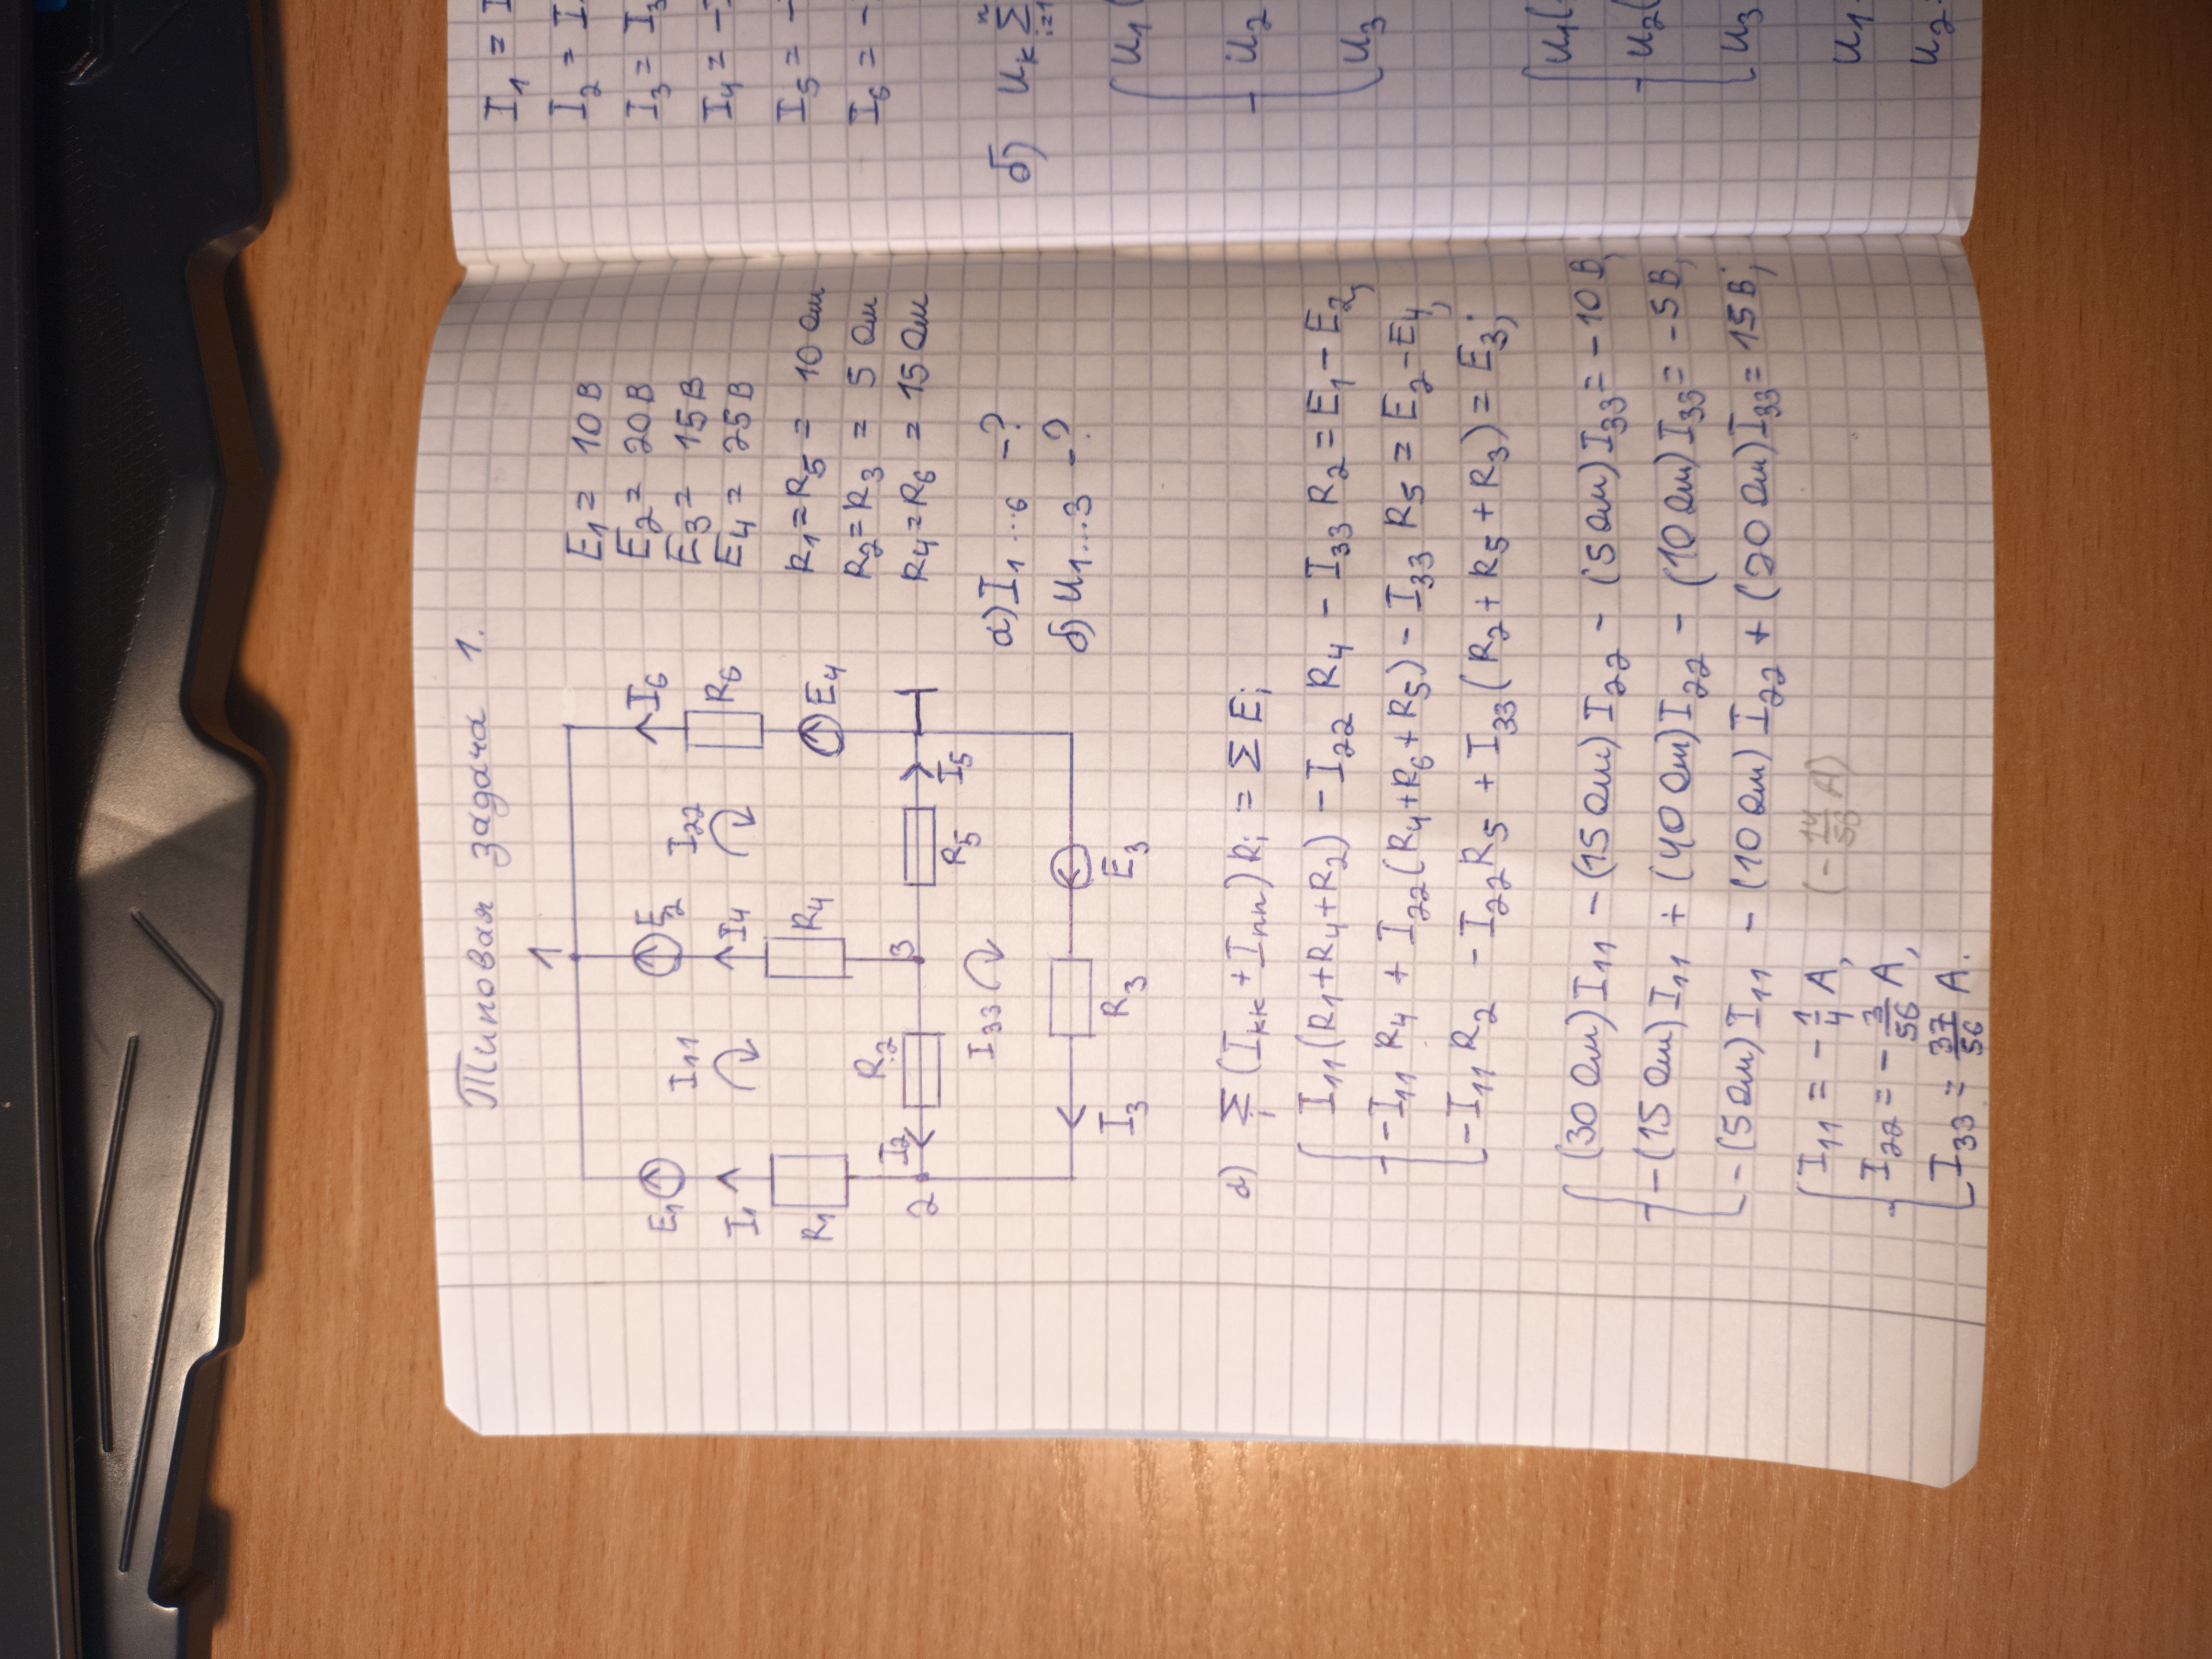 Типовая задача 1.
1
E1
I11
E2
I22
I6
R6
I1
I4
R1
R4
E4
R2
I2
2
3
R5
I5
I33
I3
R3
E3
E1 = 10 В
E2 = 20 В
E3 = 15 В
E4 = 25 В
R1 = R5 = 10 Ом
R2 = R3 = 5 Ом
R4 = R6 = 15 Ом
а) I1...6 - ?
б) U1...3 - ?
а) Σi (Iкк + Iпп) Ri = Σ Ei
I11(R1+R4+R2) - I22 R4 - I33 R2 = E1 - E2,
-I11 R4 + I22(R4+R6+R5) - I33 R5 = E2 - E4,
-I11 R2 - I22 R5 + I33(R2+R5+R3) = E3;
(30 Ом) I11 - (15 Ом) I22 - (5 Ом) I33 = -10 В,
-(15 Ом) I11 + (40 Ом) I22 - (10 Ом) I33 = -5 В,
-(5 Ом) I11 - (10 Ом) I22 + (20 Ом) I33 = 15 В;
I11 = -1/4 А, (-14/56 А)
I22 = -3/56 А,
I33 = 37/56 А.
I1 = I
I2 = I
I3 = I3
I4 = -
I5 = -
I6 = -
б) Uк Σ i=1
U1 (
U2
U3
U1(
U2(
U3
U1
U2